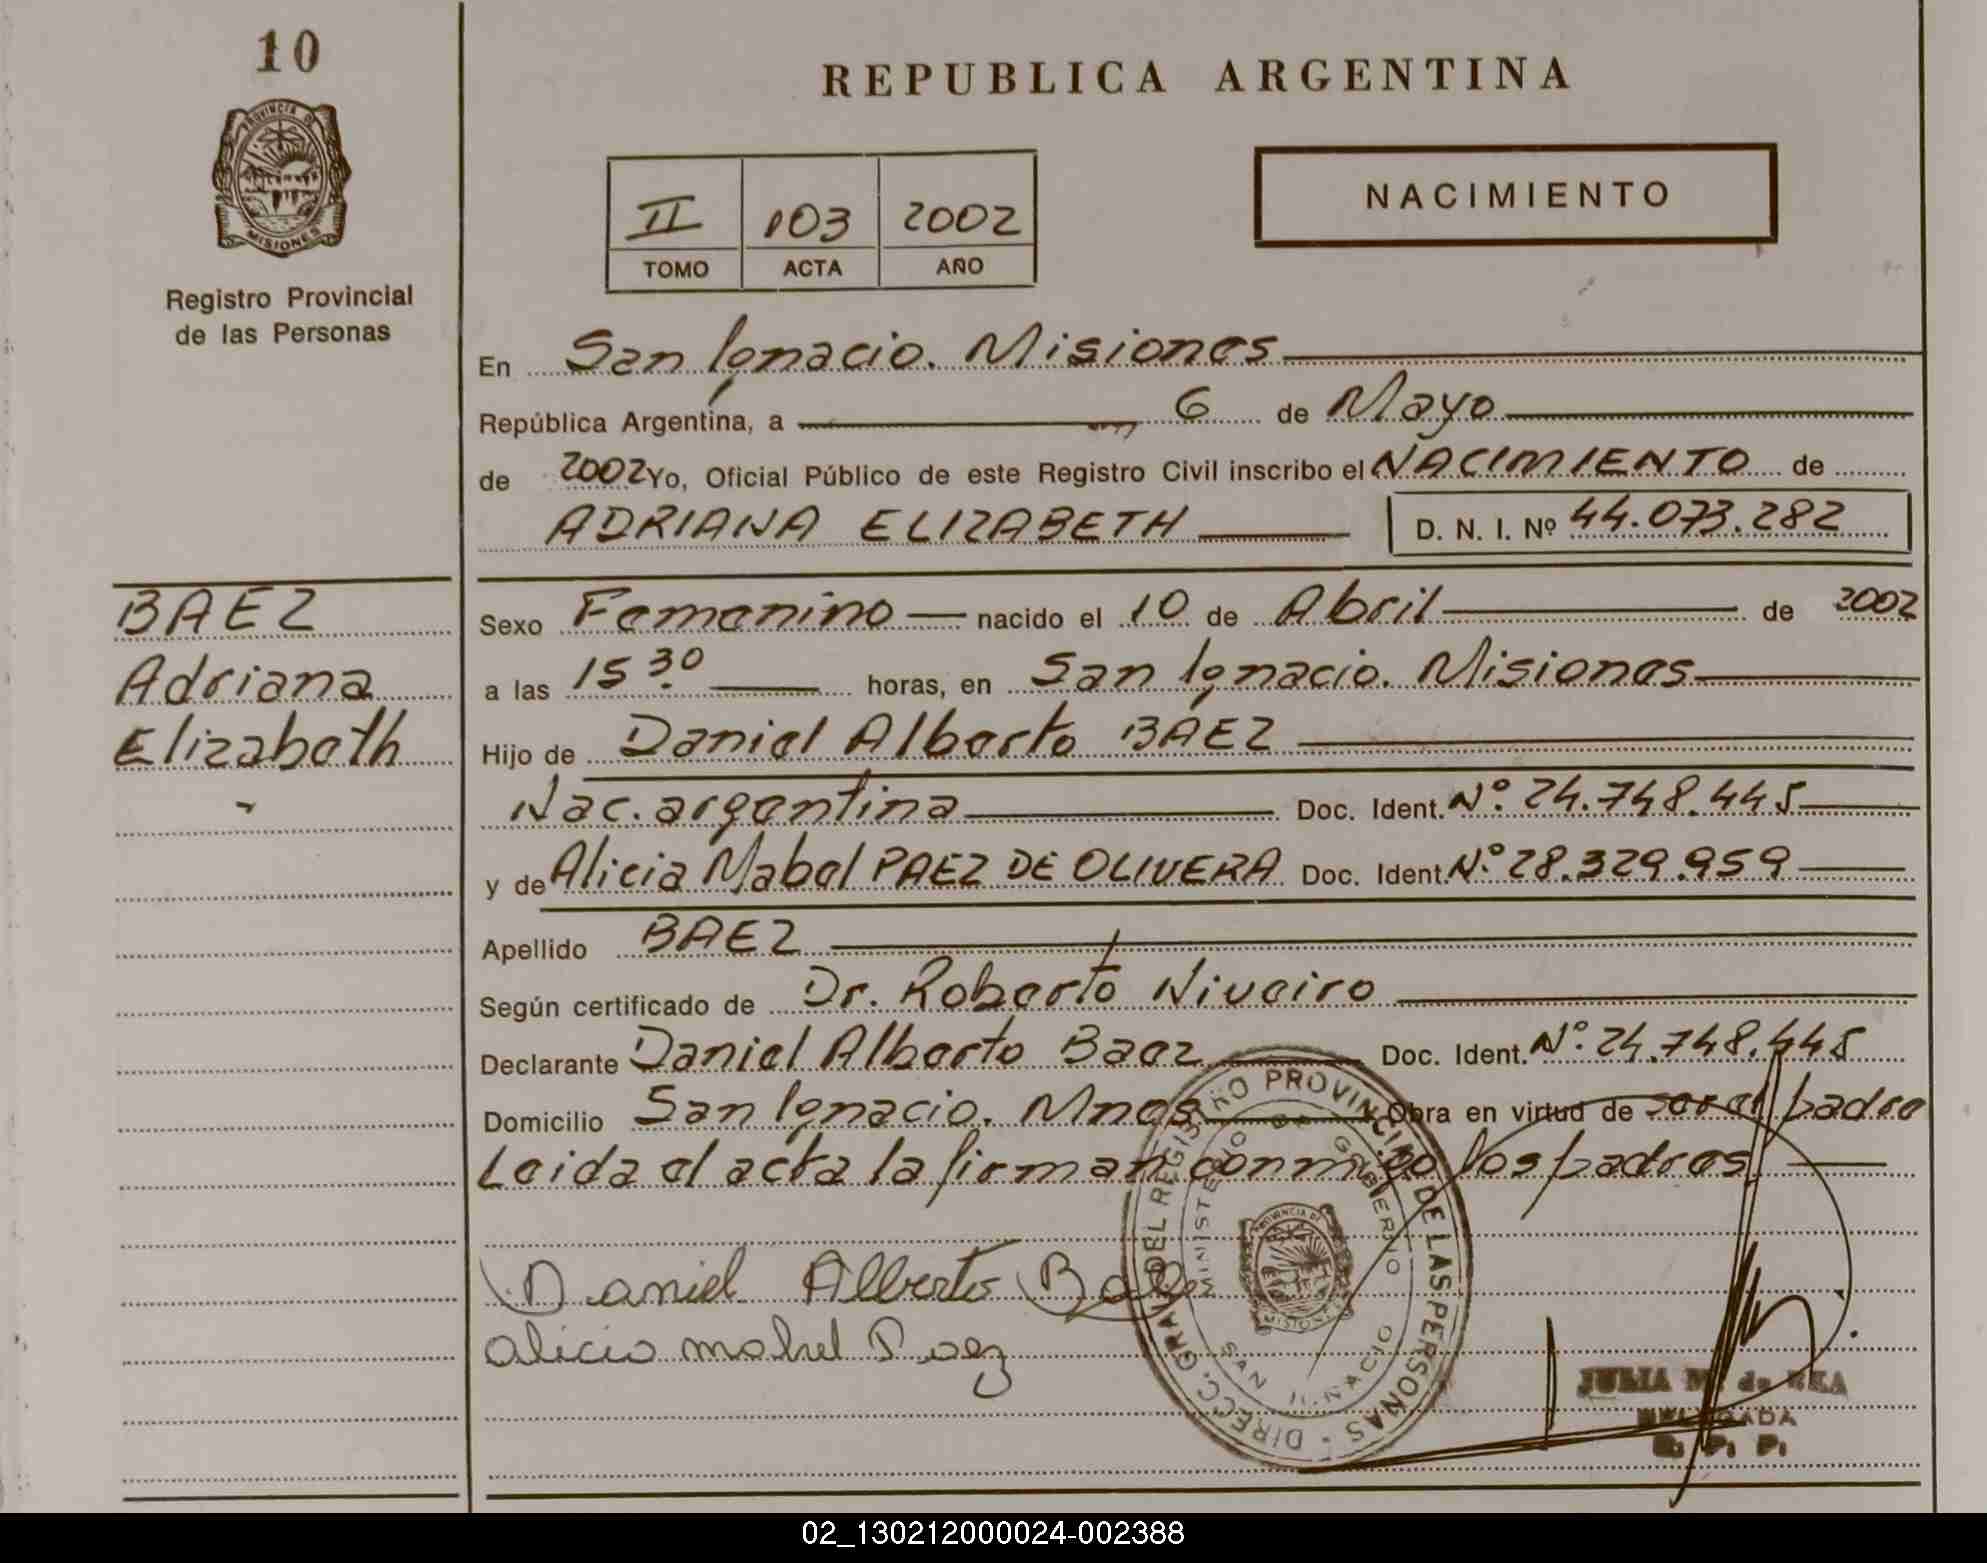 10
PROVINCIA DE
MISIONES
Registro Provincial
de las Personas
REPUBLICA ARGENTINA
II 103 2002
TOMO ACTA AÑO
NACIMIENTO
En San Ignacio. Misiones
República Argentina, a 6 de Mayo
de 2002 Yo, Oficial Público de este Registro Civil inscribo el NACIMIENTO de
ADRIANA ELIZABETH D. N. I. Nº 44.073.282
BAEZ
Adriana
Elizabeth
Sexo Femenino nacido el 10 de Abril de 2002
a las 15 30 horas, en San Ignacio. Misiones
Hijo de Daniel Alberto BAEZ
Nac. argentina Doc. Ident. Nº. 24.748.445
y de Alicia Mabel PAEZ DE OLIVERA Doc. Ident. Nº 28.329.959
Apellido BAEZ
Según certificado de Dr. Roberto Niveiro
Declarante Daniel Alberto Baez Doc. Ident. Nº. 24.748.445
Domicilio San Ignacio. Mnes Obra en virtud de ser el padre
Leida el acta la firman conmigo los padres
Daniel Alberto Baez
alicia mabel Paez
DIRECC. GRAL. DEL REGISTRO PROVINCIAL DE LAS PERSONAS
MINISTERIO DE GOBIERNO
SAN IGNACIO
PROVINCIA DE
MISIONES
JULIA M. de
DELEGADA
R. P. P.
02_130212000024-002388